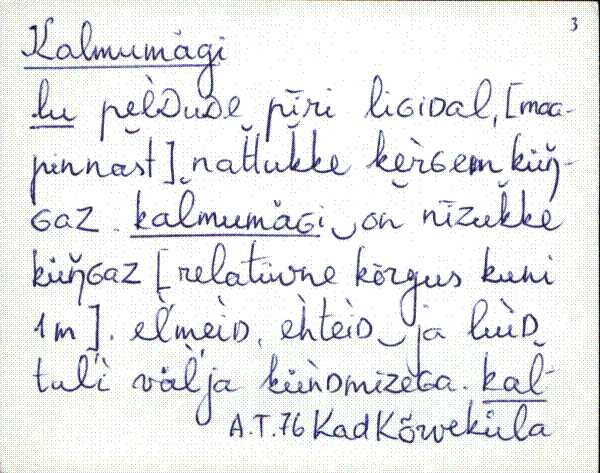 3
Kalmumägi
lu pèlDuDe pīri liGiDal, [maa-
pinnast] nattukke kèrGem küŋ-
GaZ. kalmumäGi‿on nīzukke
küŋGaZ [relatiivne kõrgus kuni
1m]. èl'meiD, èhteiD‿ja luìD
tul'i väl'ja küǹDmizèGa. kal-
A.T.76 Kad Kõrveküla